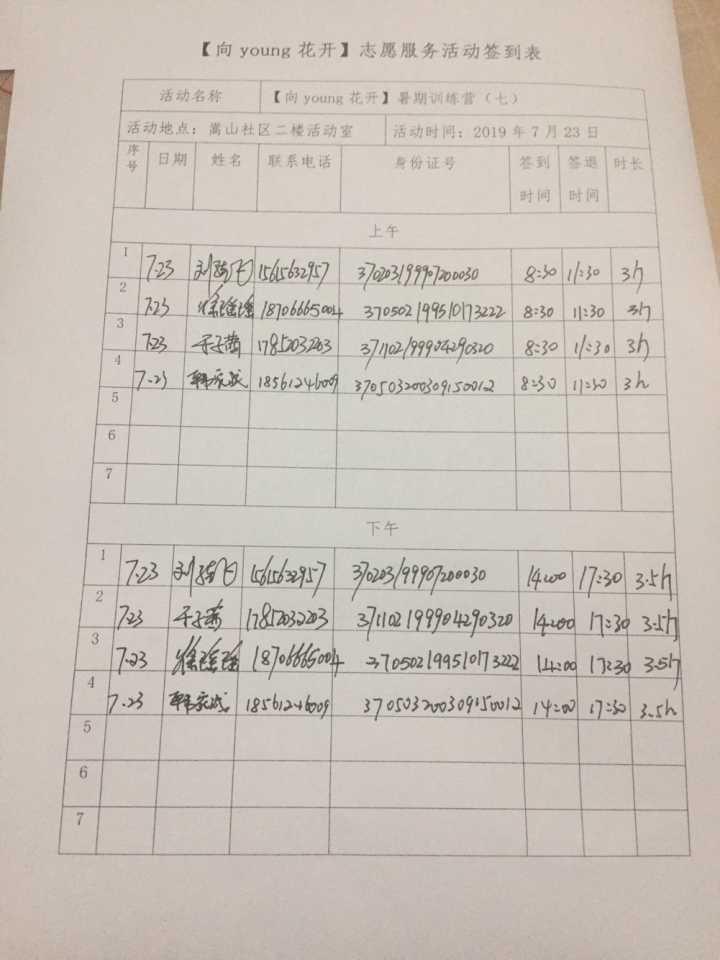 【向 young 花开】志愿服务活动签到表
活动名称 【向 young 花开】暑期训练营（七）
活动地点：嵩山社区二楼活动室 活动时间：2019 年 7 月 23 日
序号 日期 姓名 联系电话 身份证号 签到时间 签退时间 时长
上午
1 7.23 8:30 11:30 3h
2 7.23 18706665004 370502199510173222 8:30 11:30 3h
3 7.23 于子茜 8:30 11:30 3h
4 7.23 18561246009 370503200309150012 8:30 11:30 3h
5
6
7
下午
1 7.23 14:00 17:30 3.5h
2 7.23 于子茜 17852032203 371102199904290320 14:00 17:30 3.5h
3 7.23 18706665004 370502199510173222 14:00 17:30 3.5h
4 7.23 18561246009 370503200309150012 14:00 17:30 3.5h
5
6
7